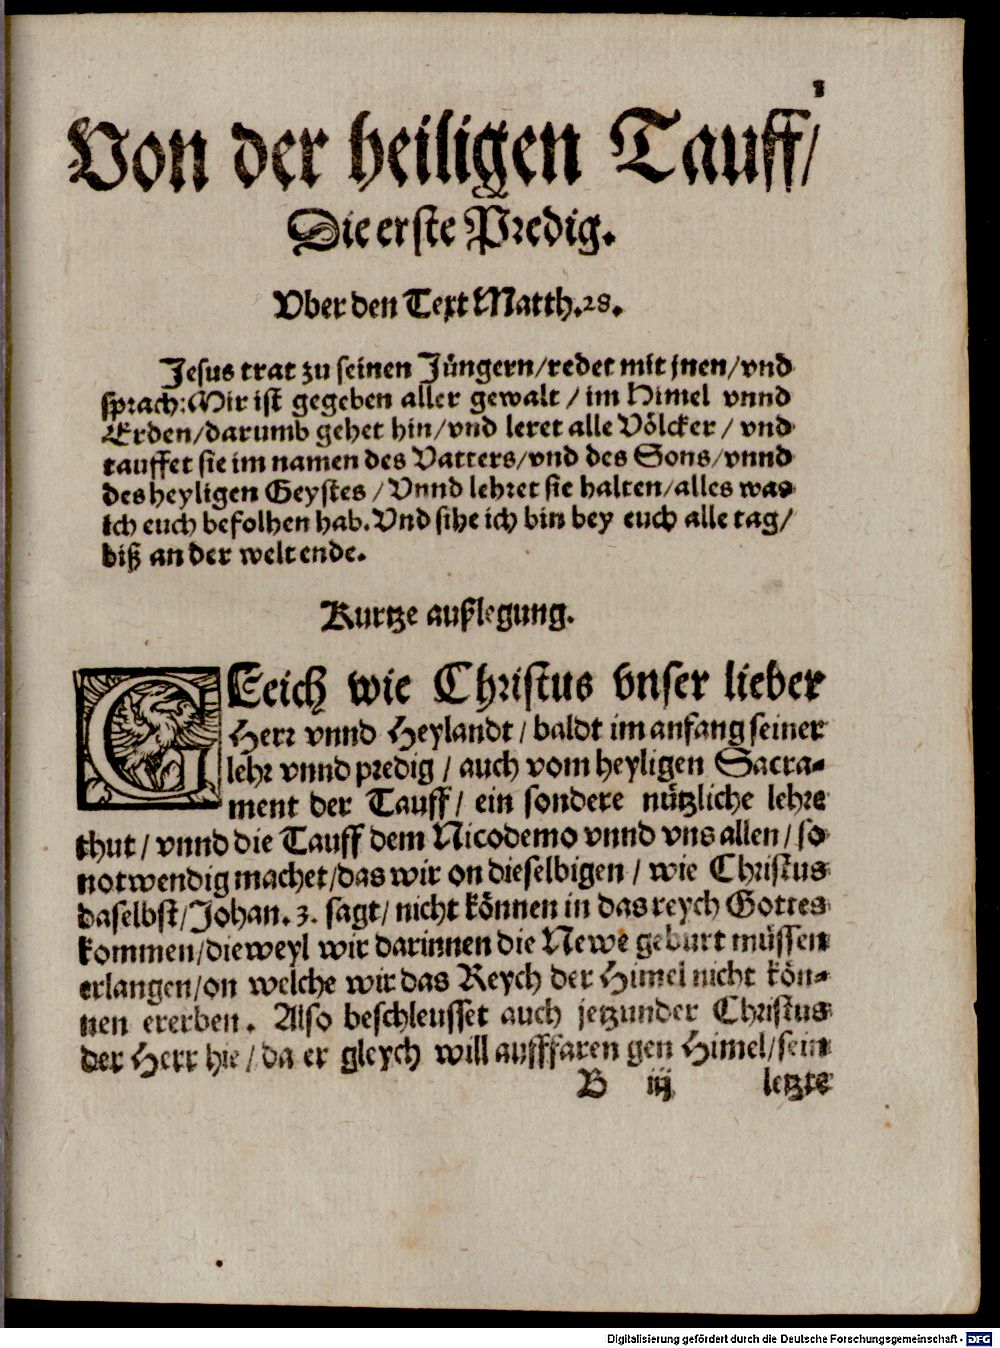 1
Von der heiligen Tauff/
Die erste Predig.
Vber den Text Matth.28.
Jesus trat zu seinen Jüngern/redet mit jnen/vnd
sprach: Mir ist gegeben aller gewalt / im Himel vnnd
Erden/darumb gehet hin/vnd leret alle Völcker / vnd
tauffet sie im namen des Vatters/vnd des Sons/vnnd
des heyligen Geystes / Vnnd lehret sie halten/alles was
ich euch befolhen hab. Vnd sihe ich bin bey euch alle tag/
biß an der welt ende.
Kurtze außlegung.
GLeich wie Christus vnser lieber
Herr vnnd Heylandt / baldt im anfang seiner
lehr vnnd predig / auch vom heyligen Sacra-
ment der Tauff / ein sondere nützliche lehre
thut / vnnd die Tauff dem Nicodemo vnnd vns allen / so
notwendig machet/das wir on dieselbigen / wie Christus
daselbst/Johan.3. sagt/ nicht können in das reych Gottes
kommen/dieweyl wir darinnen die Newe geburt müssen
erlangen/on welche wir das Reych der Himel nicht kön-
nen ererben. Also beschleusset auch jetzunder Christus
der Herr hie / da er gleych will aufffaren gen Himel/sein
B iij letzte
Digitalisierung gefördert durch die Deutsche Forschungsgemeinschaft - DFG